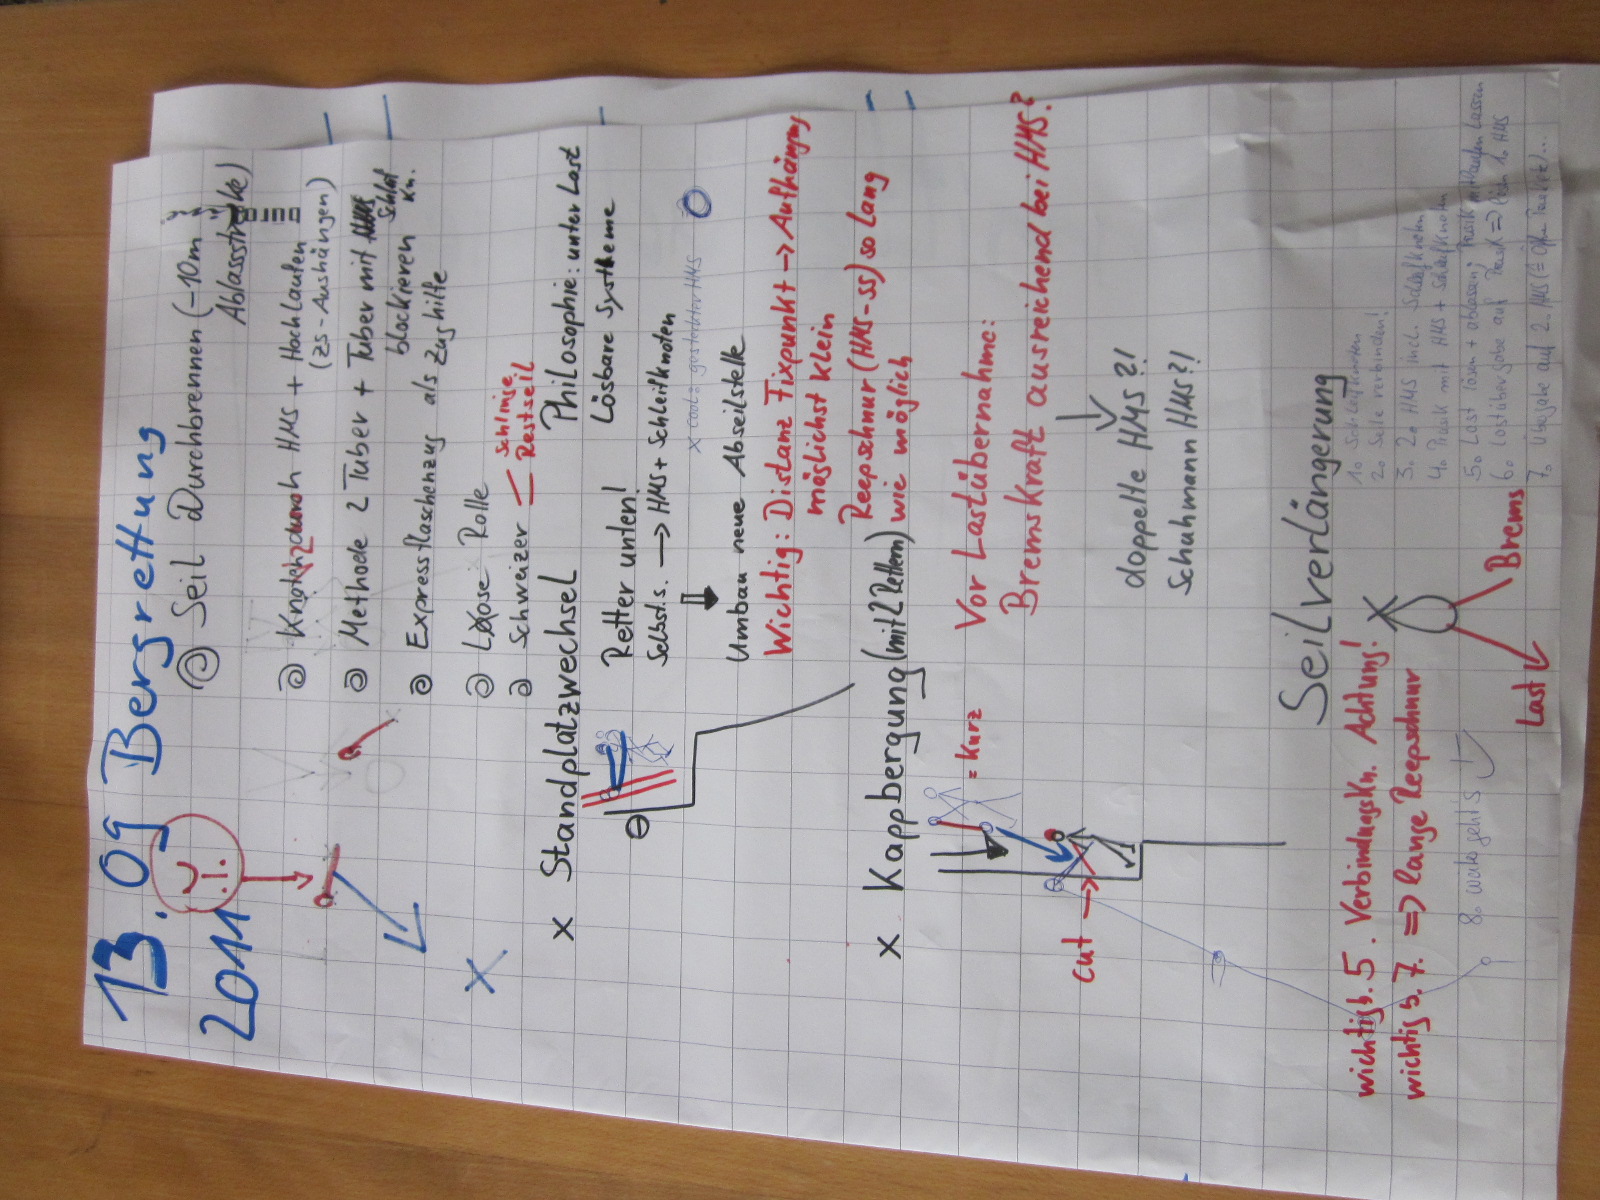 13.09 Bergrettung
2011
Seil Durchbrennen (-10m
Ablassstrecke)
Knoten durch HMS + Hochlaufen
(zs-Aushängen)
Methode 2 Tuber + Tuber mit
blockieren Schleif kn.
Expressflaschenzug als Zughilfe
Lose Rolle
Schweizer
Schlinge
Restseil
x Standplatzwechsel
Philosophie: unter Last
Lösbare Systheme
Retter unten!
Selbsts. → HMS + Schleifknoten
x cool: gesteckter HMS
Umbau neue Abseilstelle
Wichtig: Distanz Fixpunkt → Aufhängung
möglichst klein
Reepschnur (HMS-SS) so Lang
wie möglich
x Kappbergung (mit 2 Rettern)
= Kurz
Cut →
Vor Lastübernahme:
Bremskraft ausreichend bei HMS?
doppelte HMS?!
Schuhmann HMS?!
Seilverlängerung
1. Schleifknoten
2. Seile verbinden!
3. 2. HMS incl. Schleifknoten
4. Prusik mit HMS + Schleifknoten
5. Last lösen + ablassen, Prusik mitlaufen lassen
6. Lastübergabe auf Prusik ⇒ 1. HMS
7. Übergabe auf 2. HMS
8. weiter geht's
wichtig b. 5. Verbindungskn. Achtung!
wichtig b. 7. ⇒ lange Reepschnur
Last
Brems